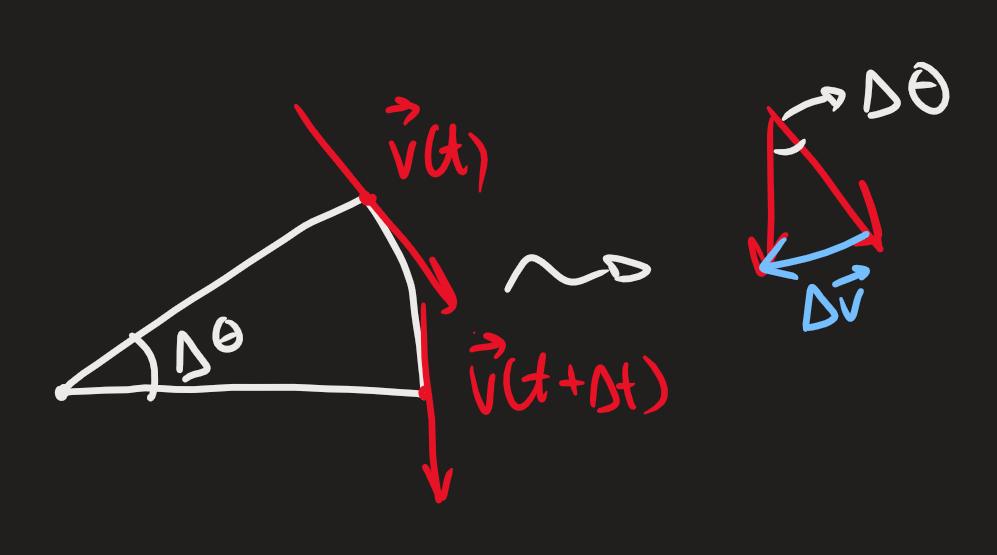 v⃗(t)
Δθ
v⃗(t+Δt)
Δθ
Δv⃗